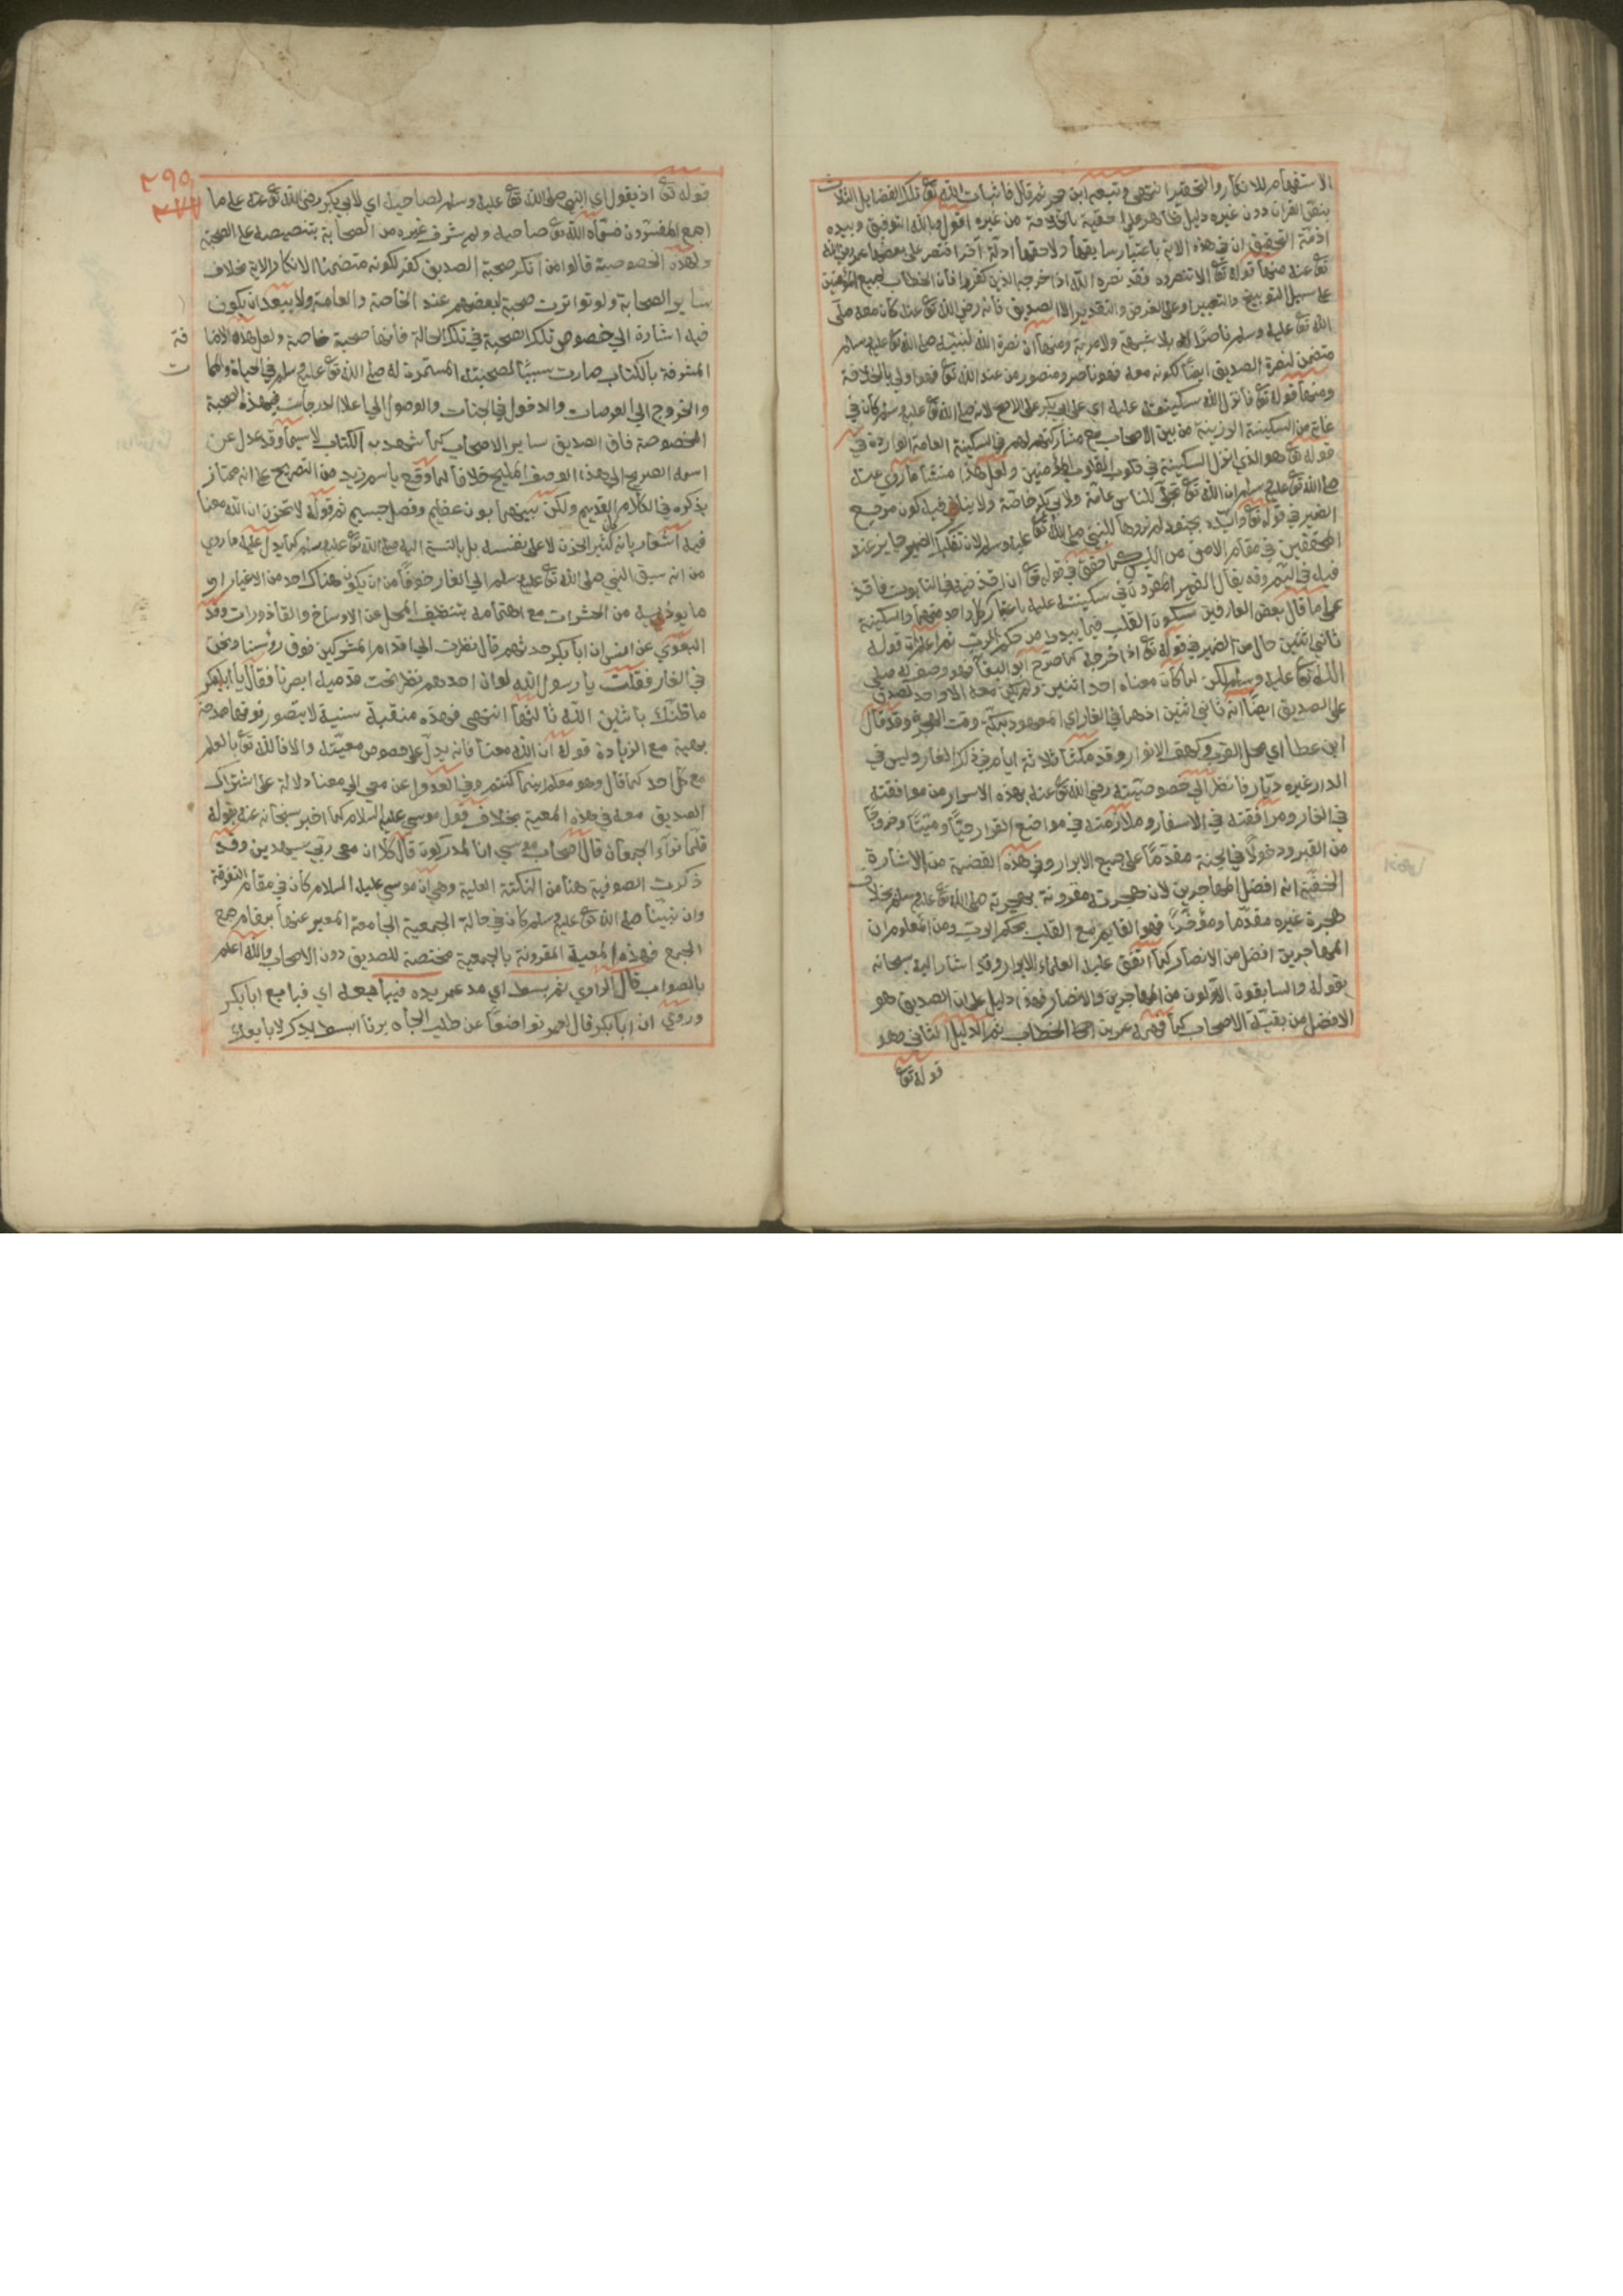 الاستفهام للانكار والتحقير انتهى وتبعه ابن حجر ثم قال فاثبات الله تع تلك الفضايل الثلاث
بنص القران دون غيره دليل ظاهر على احقيته بالخلافة من غيره اقول وبالله التوفيق وبيده
ازمة التحقيق ان في هذه الاية باعتبار سابقها ولاحقها ادلة اخرا فتصر على بعضها عمر رضي الله
تع عنه منها قوله تع الا تنصروه فقد نصره الله اذ اخرجه الذين كفروا فان الخطاب لجميع المؤمنين
على سبيل التوبيخ والتعيير او على الفرض والتقدير الا الصديق فانه رضي الله تع عنه كان معه صلى
الله تع عليه وسلم ناصرا له بلا شبهة ولا مرية ومنها ان نصرة الله لنبيه صلى الله تع عليه وسلم
متضمن لنصرة الصديق ايضا لكونه معه فهو ناصر ومنصور من عند الله تع فهو اولى بالخلافة
ومنها قوله تع فانزل الله سكينته عليه اي على ابي بكر على الاصح لانه صلى الله تع عليه وسلم كان في
غاية من السكينة الرزينة من بين الاصحاب مع مشاركتهم لهم في السكينة العامة الواردة في
قوله تع هو الذي انزل السكينة في قلوب المؤمنين ولعل هذا منشأ ما روي عنه
صلى الله تع عليه وسلم ان الله تع تجلى للناس عامة ولابي بكر خاصة ولا ينافيه كون مرجع
الضمير في قوله تع وايده بجنود لم تروها للنبي صلى الله تع عليه وسلم لان تفكيك الضمير جايز عند
المحققين في مقام الامن من اللبس كما حقق في قوله تع ان اقذفيه في التابوت فاقذ
فيه في اليم وقد يقال الضمير المفرد في سكينته عليه باعتبار كل واحد منهما والسكينة
على ما قال بعض العارفين سكون القلب فيما يبدو من حكم الرب ثم اعلم ان قوله
ثاني اثنين حال من الضمير في قوله تع اذ اخرجه كما صرح ابو البقا فهو وصف له صلى
الله تع عليه وسلم لكن لما كان معناه احد اثنين ولم يكن معه الا واحد صدق
على الصديق ايضا انه ثاني اثنين اذهما في الغار اي المعهود بمكة وقت الهجرة وقد قال
ابن عطا اي محل القرب وكهف الانوار وقد مكثا ثلاثة ايام في ذلك الغار وليس في
الدار غيره ديار فانظر الى خصوصيته رضي الله تع عنه بهذه الاسرار من موافقته
في الغار ومرافقته في الاسفار وملازمته في مواضع القرار حيا وميتا وخروجا
من القبر ودخولا في الجنة مقدما على جميع الابرار وفي هذه القضية من الاشارة
الخفية انه افضل المهاجرين لان هجرته مقرونة بهجرته صلى الله تع عليه وسلم بخلاف
هجرة غيره مقدما ومؤخرا فهو القايم مع القلب بحكم الرب ومن المعلوم ان
المهاجرين افضل من الانصار كما اتفق عليه العلماء الابرار وقد اشار اليه سبحانه
بقوله والسابقون الاولون من المهاجرين والانصار فهذا دليل على ان الصديق هو
الافضل من بقية الاصحاب كما فهمه عمر بن الخطاب ثم الدليل الثاني وهو
قوله تع
٢٩٥
قوله تع اذ يقول اي النبي صلى الله تع عليه وسلم لصاحبه اي لابي بكر رضي الله تع عنه على ما
اجمع المفسرون فسماه الله تع صاحبه ولم يشرف غيره من الصحابة بتنصيصه على الصحبة
ولهذه الخصوصية قالوا من انكر صحبة الصديق كفر لكونه متضمنا لانكار الاية بخلاف
ساير الصحابة ولو تواترت صحبة لبعضهم عند الخاصة والعامة ولا يبعد ان يكون
فيه اشارة الى خصوص تلك الصحبة في تلك الحالة فانها صحبة خاصة ولعل هذه الاضا
فة
المشرفة بالكتاب صارت سببا لصحبته المستمرة له صلى الله تع عليه وسلم في الحياة والمما
ت
والخروج الى العرصات والدخول في الجنات والوصول الى اعلا الدرجات فبهذه الصحبة
المخصوصة فاق الصديق ساير الاصحاب كما شهد به الكتاب لا سيما وقد عدل عن
اسمه الصريح الى هذا الوصف المليح خلافا لما وقع باسم زيد من التصريح على انه ممتاز
بذكره في الكلام القديم ولكن بينهما بون عظيم وفصل جسيم ثم قوله لا تحزن ان الله معنا
فيه اشعار بانه كثير الحزن لا على نفسه بل بالنسبة اليه صلى الله تع عليه وسلم كما يدل عليه ما روي
من انه سبق النبي صلى الله تع عليه وسلم الى الغار خوفا من ان يكون هناك احد من الاغيار او
ما يوذيه من الحشرات مع اهتمامه بتنظيف المحل عن الاوساخ والقاذورات وقد
البغوي عن انس ان ابا بكر حدثهم قال نظرت الى اقدام المشركين فوق رؤسنا ونحن
في الغار فقلت يا رسول الله لو ان احدهم نظر تحت قدميه ابصرنا فقال يا ابا بكر
ما ظنك باثنين الله ثالثهما انتهى فهذه منقبة سنية لا يتصور فوقها مدحة
بهية مع الزيادة قوله ان الله معنا فانه يدل على خصوص معيته والا فالله تع بالعلم
مع كل احد كما قال وهو معكم اينما كنتم وفي العدول عن معي الى معنا دلالة على اشتراك
الصديق معه في هذه المعية بخلاف قول موسى عليه السلام كما اخبر سبحانه عنه بقوله
فلما تراء الجمعان قال اصحاب موسى انا لمدركون قال كلا ان معي ربي سيهدين وقد
ذكرت الصوفية هنا من النكتة العلية وهي ان موسى عليه السلام كان في مقام التفرقة
وان نبينا صلى الله تع عليه وسلم كان في حالة الجمعية الجامعة المعبر عنها بمقام جمع
الجمع فهذه المعية المقرونة بالجمعية مختصة للصديق دون الاصحاب والله اعلم
بالصواب قال الراوي ثم بسط اي مد عمر يده فبايعه اي فبايع ابا بكر
وروي ان ابا بكر قال لعمر تواضعا عن طلب الجاه ابسط يدك لابايعك